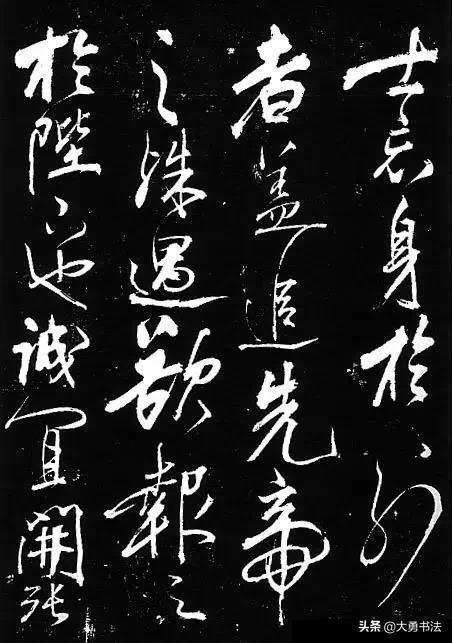 士忘身於外
者盖追先帝
之殊遇欲報之
於陛下也诚宜開张
头条 @大勇书法